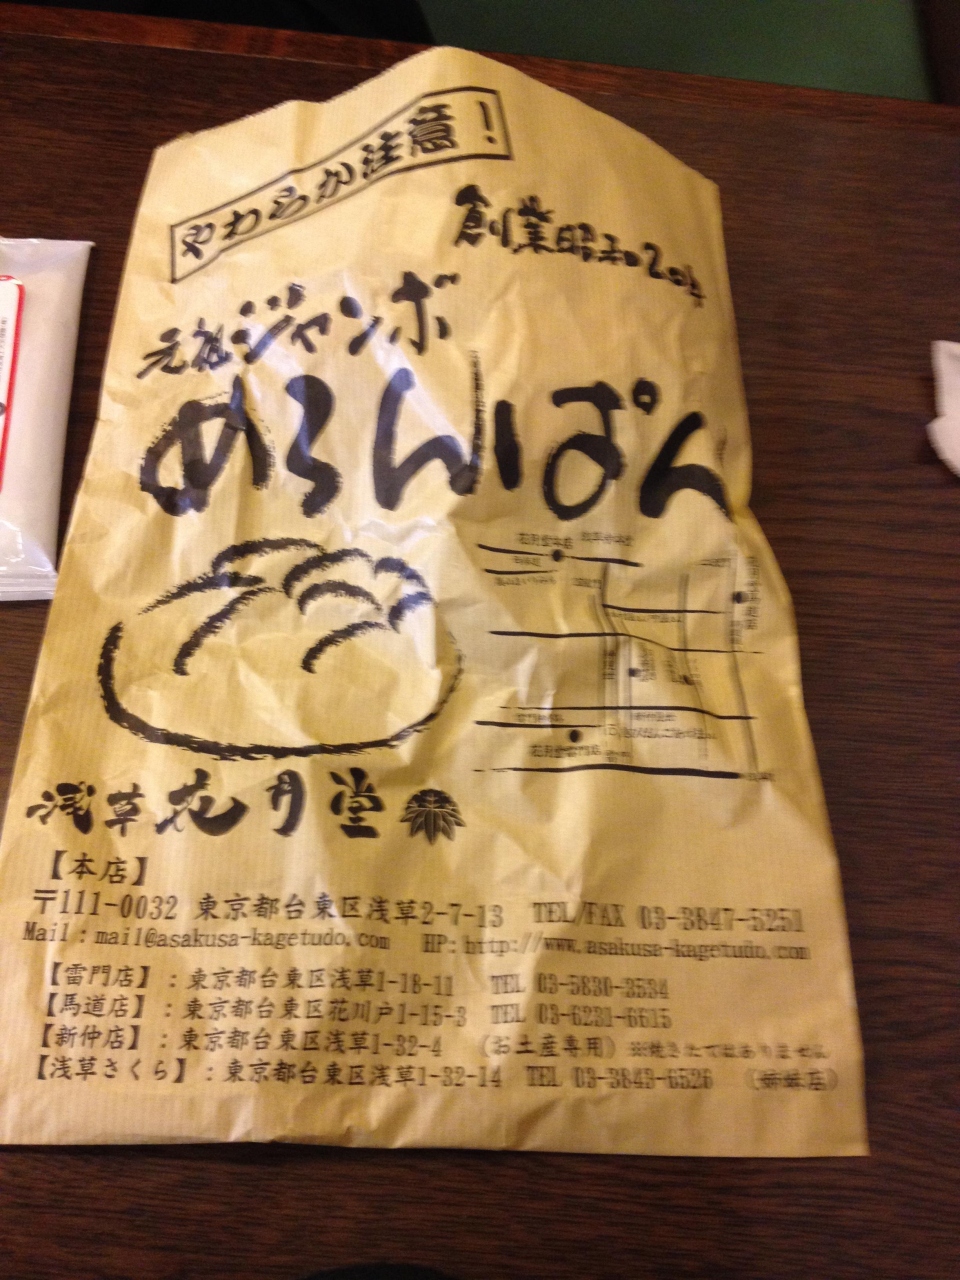 やわらか注意!
創業昭和20年
元祖ジャンボ
めろんぱん
花月堂本店
花月堂雷門店
浅草花月堂
【本店】
〒111-0032 東京都台東区浅草2-7-13 TEL/FAX 03-3847-5251
Mail:mail@asakusa-kagetudo.com HP:http://www.asakusa-kagetudo.com
【雷門店】:東京都台東区浅草1-18-11 TEL 03-5830-3534
【馬道店】:東京都台東区花川戸1-15-3 TEL 03-6231-6615
【新仲店】:東京都台東区浅草1-32-4 (お土産専用) ※焼きたてはありません
【浅草さくら】:東京都台東区浅草1-32-14 TEL 03-3843-6526 (姉妹店)